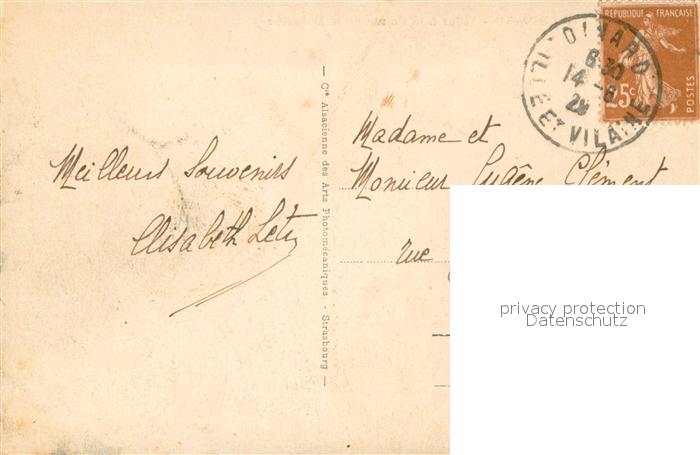 Meilleurs Souvenirs
Elisabeth
— Cie Alsacienne des Arts Photomécaniques - Strasbourg —
RÉPUBLIQUE FRANÇAISE
25c
POSTES
DINARD
6 30
14 - 8
ILLE ET VILAINE
Madame et
Monsieur Eugène Clément
rue
privacy protection
Datenschutz